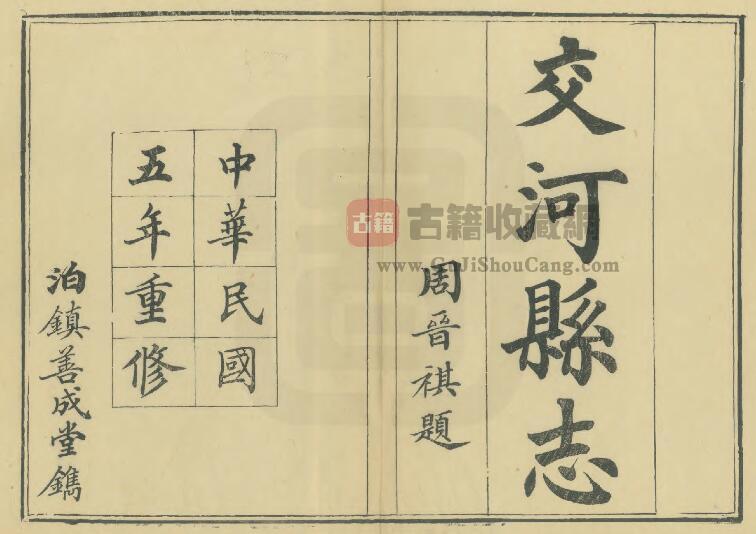 交河縣志
周晉祺題
中華民國
五年重修
泊鎮善成堂鐫
古籍
古籍收藏網
www.GuJiShouCang.com